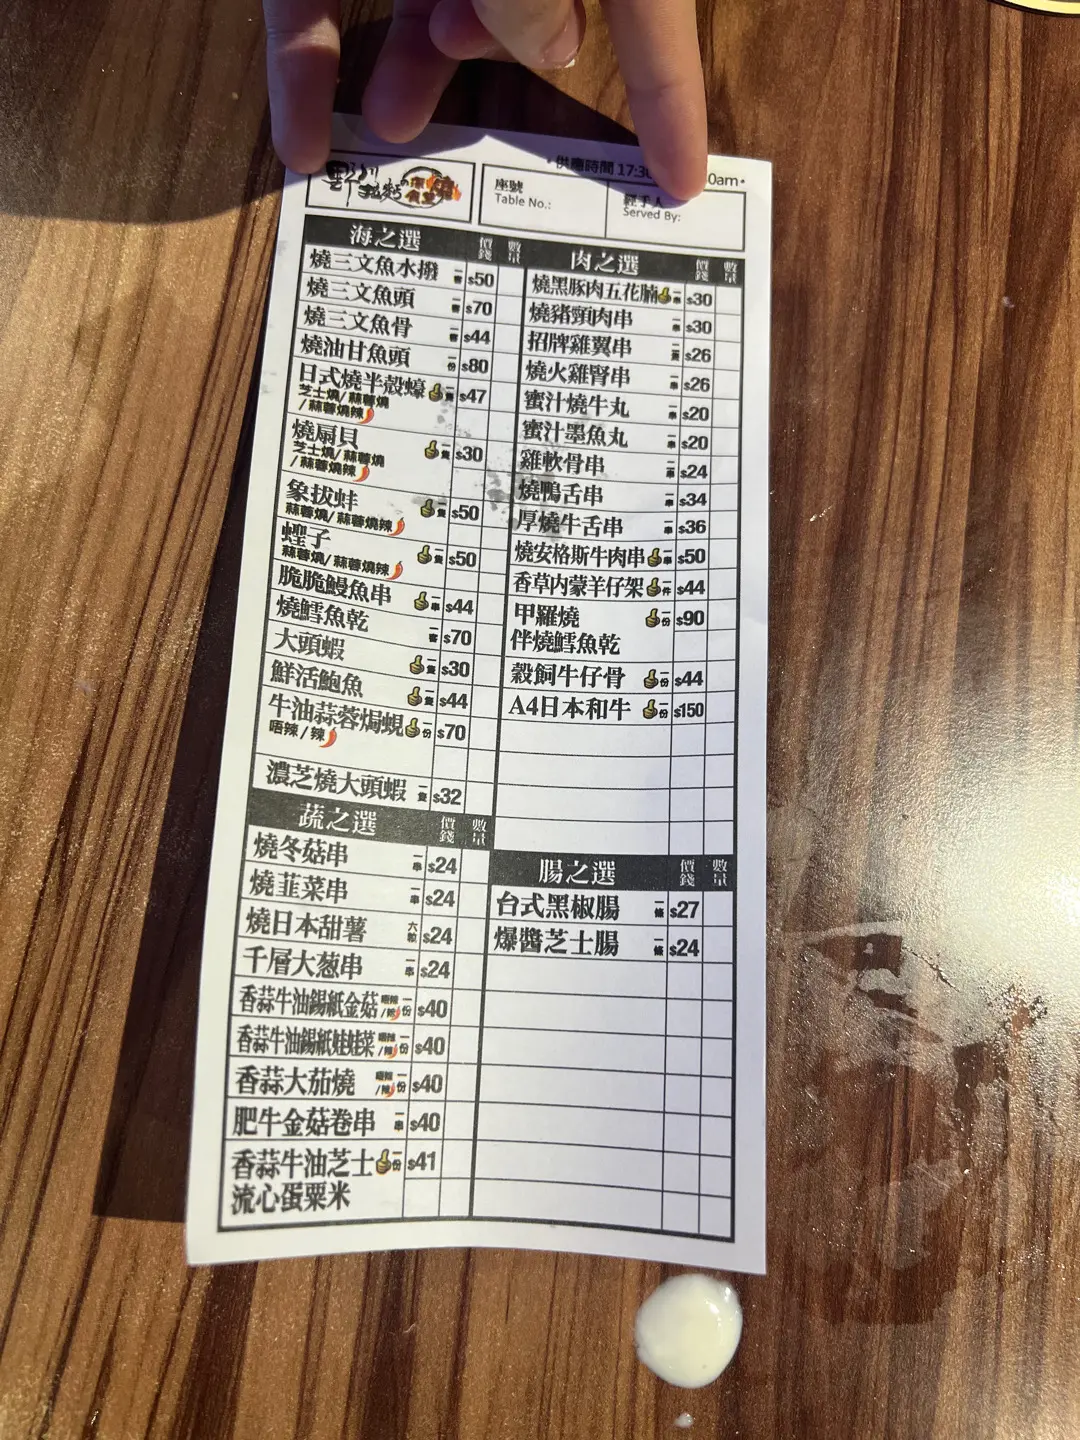 •供應時間 17:30
0am•
座號
Table No.:
經手人
Served By:
海之選 價錢 數量
燒三文魚水撈 一客 $50
燒三文魚頭 一客 $70
燒三文魚骨 一客 $44
燒油甘魚頭 一份 $80
日式燒半殼蠔 一隻 $47
芝士燒/蒜蓉燒
/蒜蓉燒辣
燒扇貝 一隻 $30
芝士燒/蒜蓉燒
/蒜蓉燒辣
象拔蚌 一隻 $50
蒜蓉燒/蒜蓉燒辣
蟶子 一隻 $50
蒜蓉燒/蒜蓉燒辣
脆脆鰻魚串 一串 $44
燒鱈魚乾 一客 $70
大頭蝦 一隻 $30
鮮活鮑魚 一隻 $44
牛油蒜蓉焗蜆 一份 $70
唔辣/辣
濃芝燒大頭蝦 一隻 $32
蔬之選 價錢 數量
燒冬菇串 一串 $24
燒韮菜串 一串 $24
燒日本甜薯 六粒 $24
千層大葱串 一串 $24
香蒜牛油錫紙金菇 唔辣/辣 一份 $40
香蒜牛油錫紙娃娃菜 唔辣/辣 一份 $40
香蒜大茄燒 唔辣/辣 一份 $40
肥牛金菇卷串 一串 $40
香蒜牛油芝士 一份 $41
流心蛋粟米
肉之選 價錢 數量
燒黑豚肉五花腩 一串 $30
燒豬頸肉串 一串 $30
招牌雞翼串 一隻 $26
燒火雞腎串 一串 $26
蜜汁燒牛丸 一串 $20
蜜汁墨魚丸 一串 $20
雞軟骨串 一串 $24
燒鴨舌串 一串 $34
厚燒牛舌串 一串 $36
燒安格斯牛肉串 一串 $50
香草内蒙羊仔架 一件 $44
甲羅燒 一份 $90
伴燒鱈魚乾
穀飼牛仔骨 一份 $44
A4日本和牛 一份 $150
腸之選 價錢 數量
台式黑椒腸 一條 $27
爆醬芝士腸 一條 $24